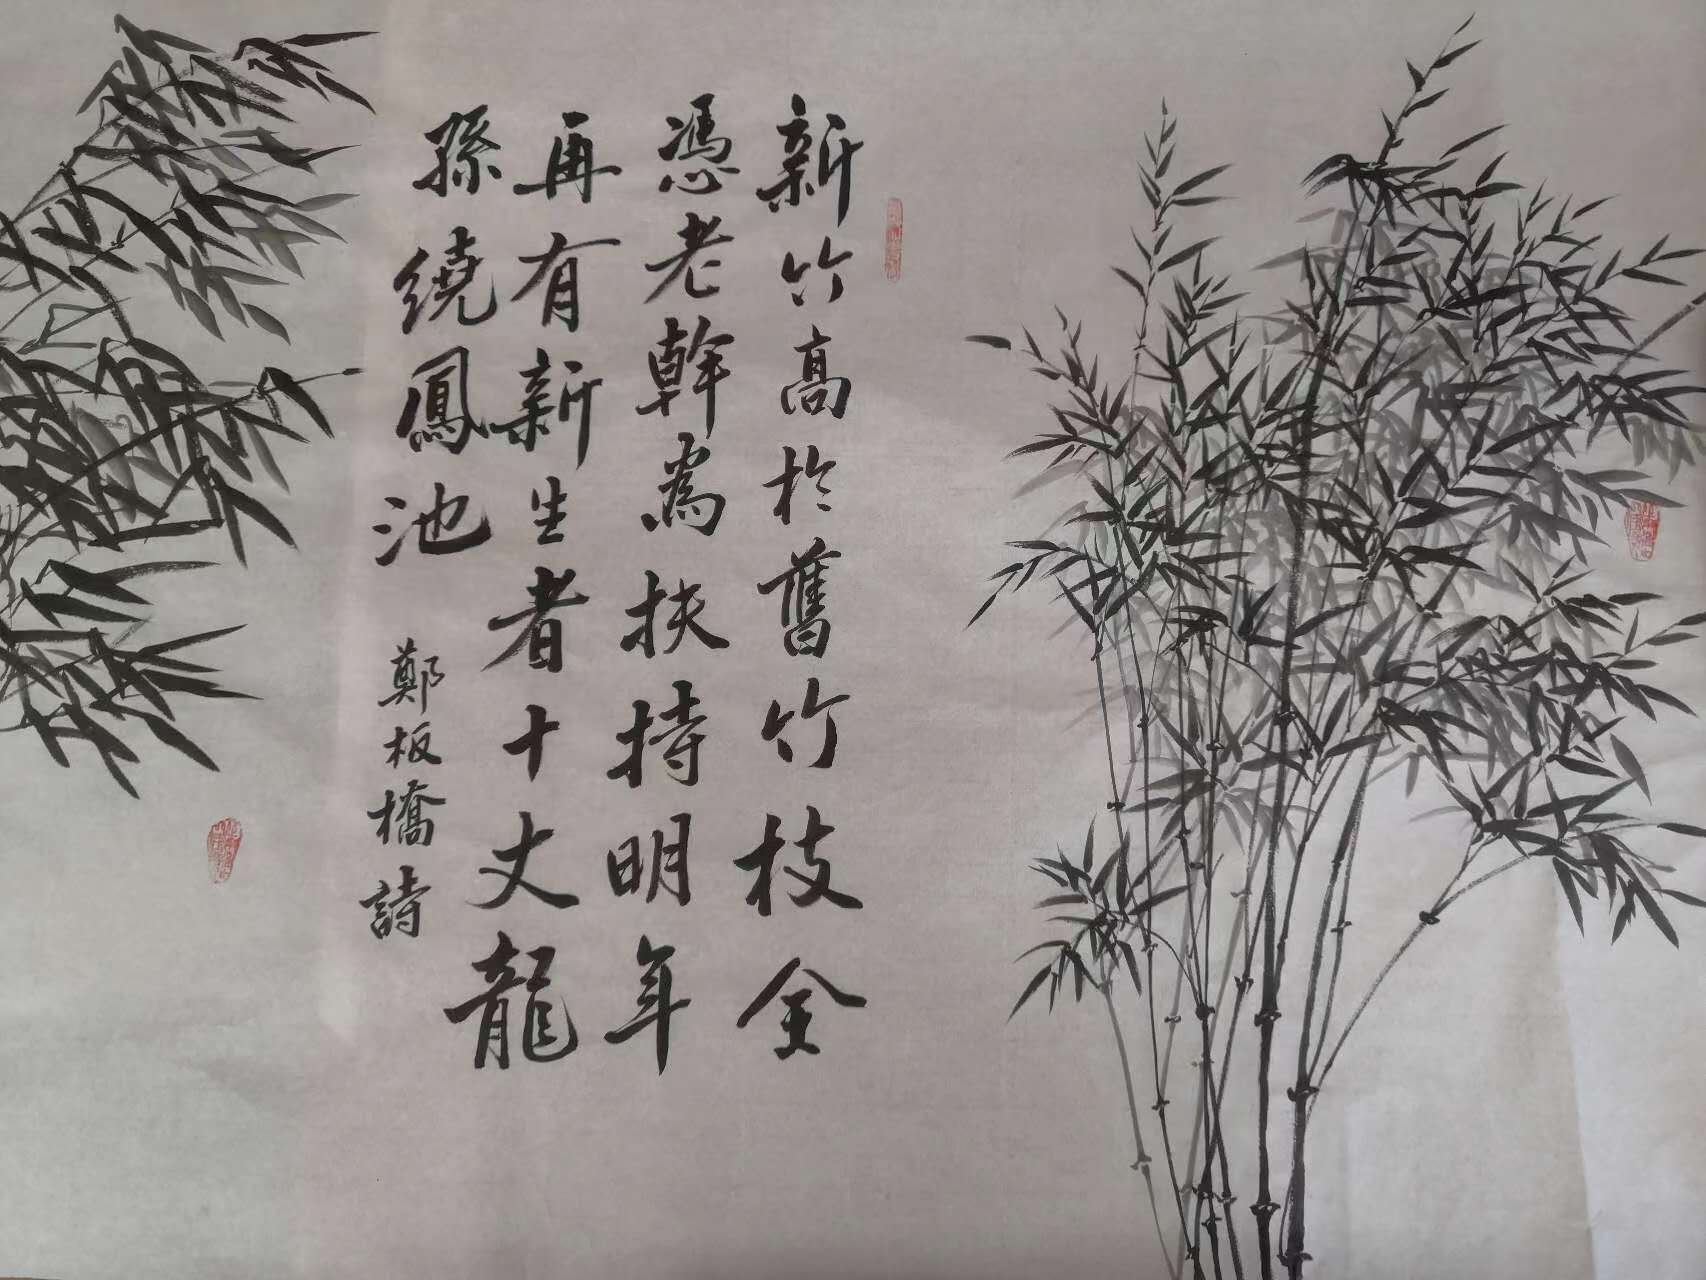 新竹高於舊竹枝全
憑老幹為扶持明年
再有新生者十丈龍
孫繞鳳池
鄭板橋詩